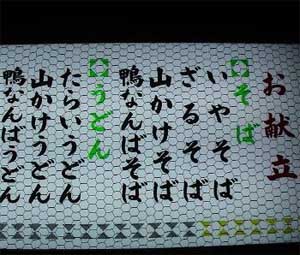 お献立
【そば】
いやそば
ざるそば
山かけそば
鴨なんばそば
【うどん】
たらいうどん
山かけうどん
鴨なんばうどん